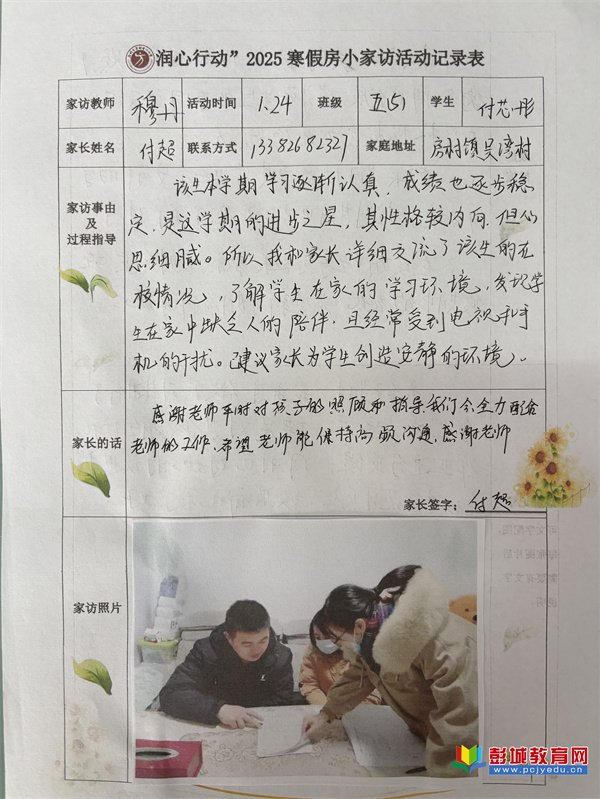 润心行动”2025寒假房小家访活动记录表
家访教师 穆丹 活动时间 1.24 班级 五(5) 学生 付芯彤
家长姓名 付超 联系方式 13382682327 家庭地址 房村镇吴湾村
家访事由及过程指导
该生本学期学习逐渐认真，成绩也逐步稳
定，是这学期的进步之星，其性格较内向，但心
思细腻。所以我和家长详细交流了该生的在
校情况，了解学生在家的学习环境，发现学
生在家中缺乏人的陪伴，且经常受到电视和手
机的干扰。建议家长为学生创造安静的环境。
家长的话
感谢老师平时对孩子的照顾和指导我们会全力配合
老师的工作，希望老师能保持高频沟通，感谢老师
家长签字：付超
家访照片
彭城教育网
www.pcjyedu.cn